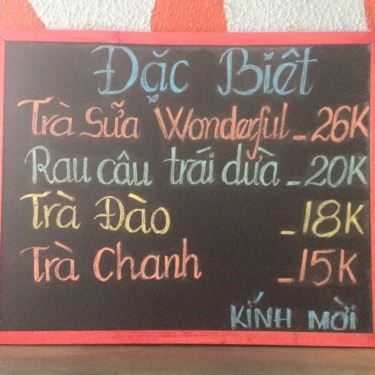 Đặc Biệt
Trà Sữa Wonderful _ 26K
Rau câu trái dừa _ 20K
Trà Đào _ 18K
Trà Chanh _ 15K
KÍNH MỜI